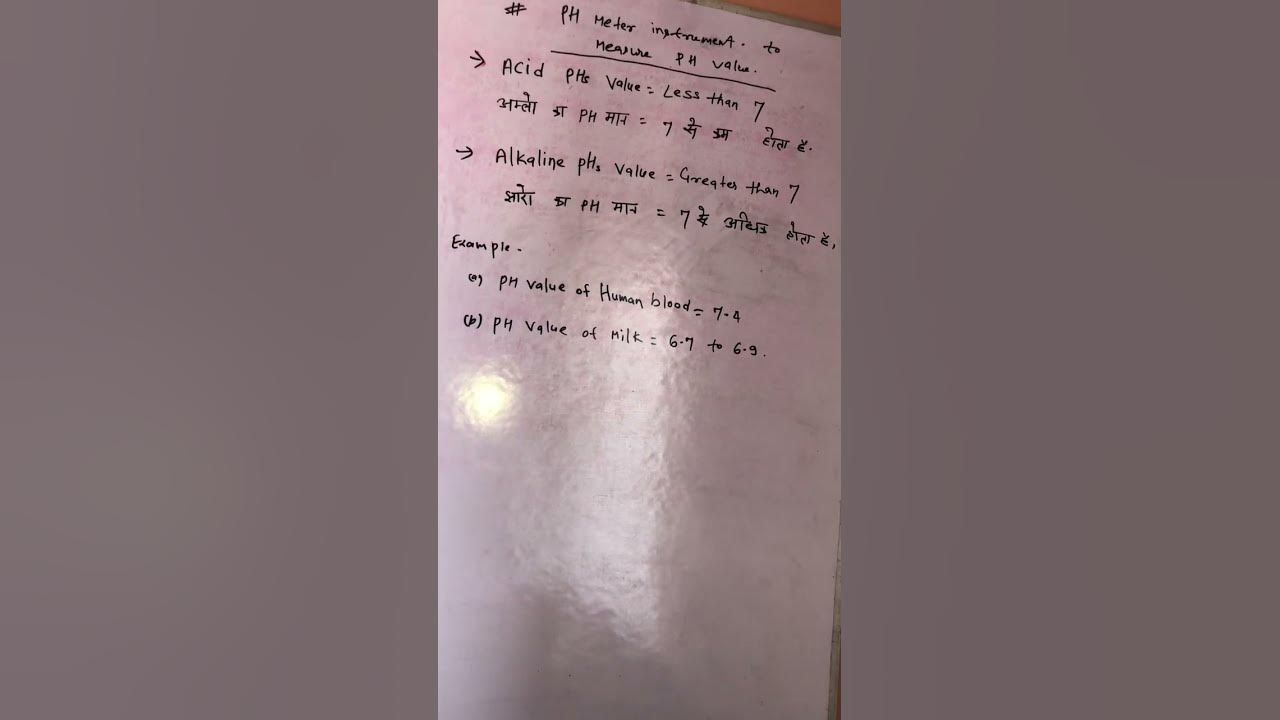 # PH Meter instrument. to
Measure PH value.
→ Acid PHs Value = Less than 7
अम्लो का PH मान = 7 से कम होता है.
→ Alkaline PHs Value = Greater than 7
क्षारो का PH मान = 7 से अधिक होता है,
Example.
(a) PH value of Human blood = 7.4
(b) PH Value of Milk = 6.7 to 6.9.